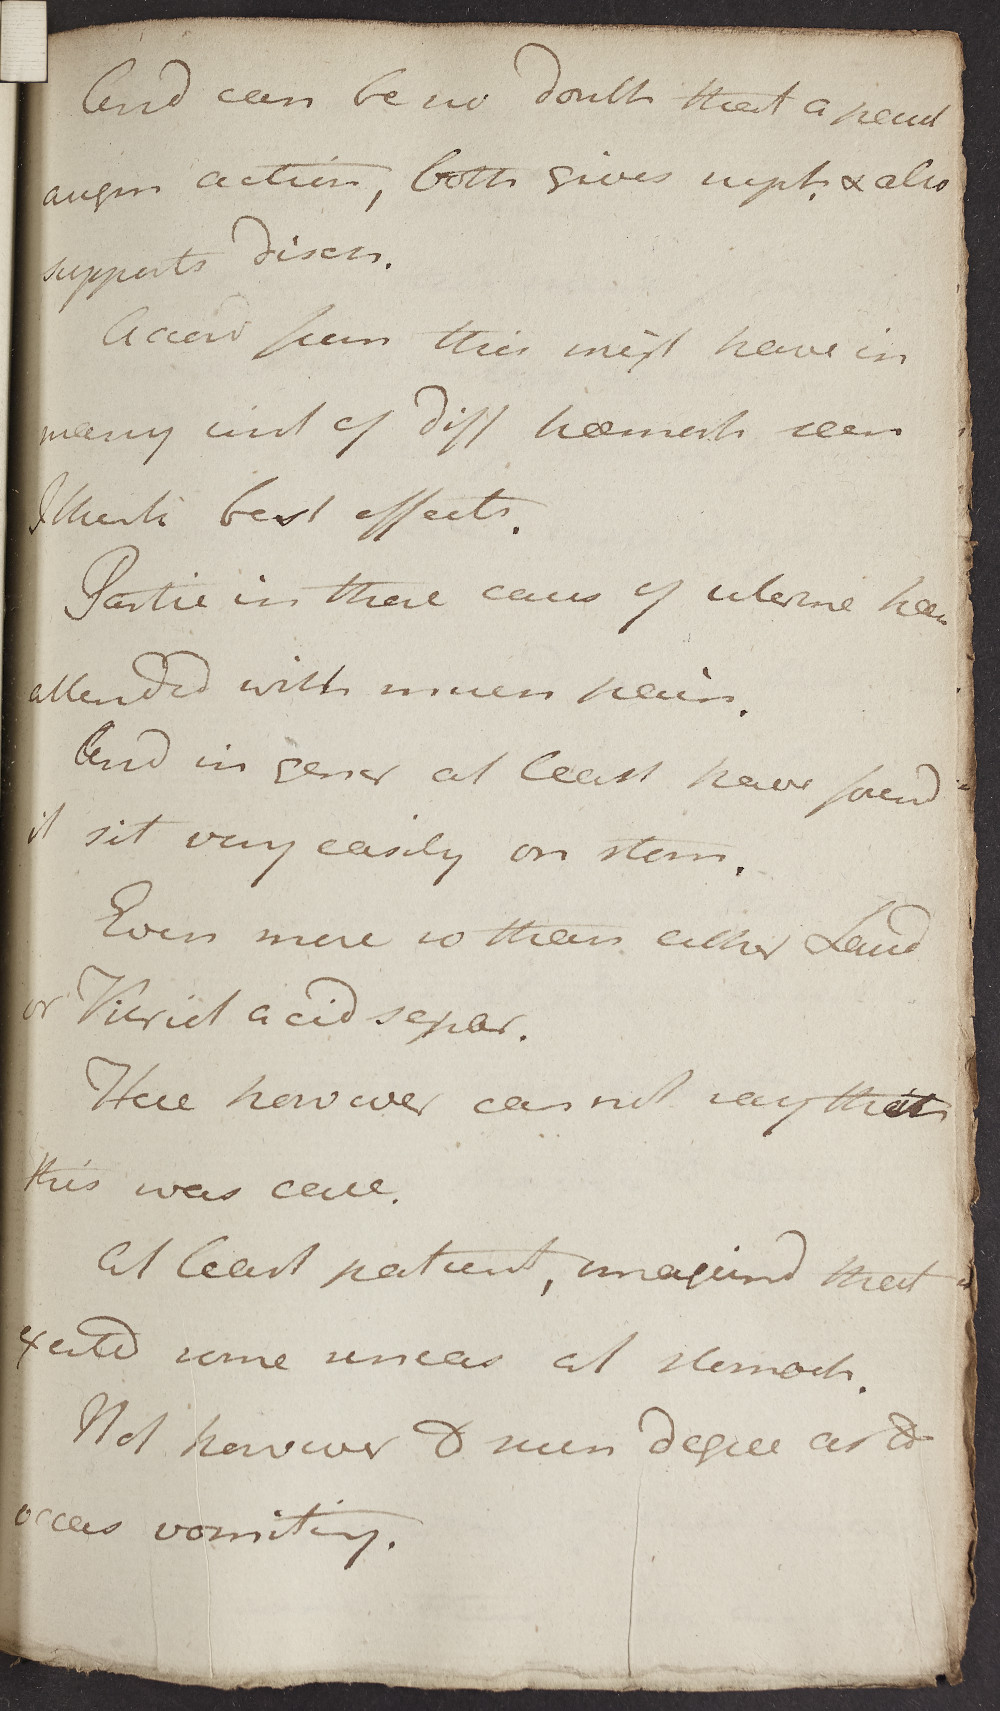 And can be no doubt that a
augm action, both gives rupt. & also
supports disch.
Accord from this mixt have in
many inst of diff haemorh seen
best effects.
Partic in those cases of uterine haem
attended with much pain.
And in gener at least have found
it sit very easily on stom.
Even more so than either Laud
or Vitriol acid separ.
Here however can not say that
this was case.
At least patient, imagind that it
excitd some uneas at stomach.
Not however to such degree as to
occas vomiting.